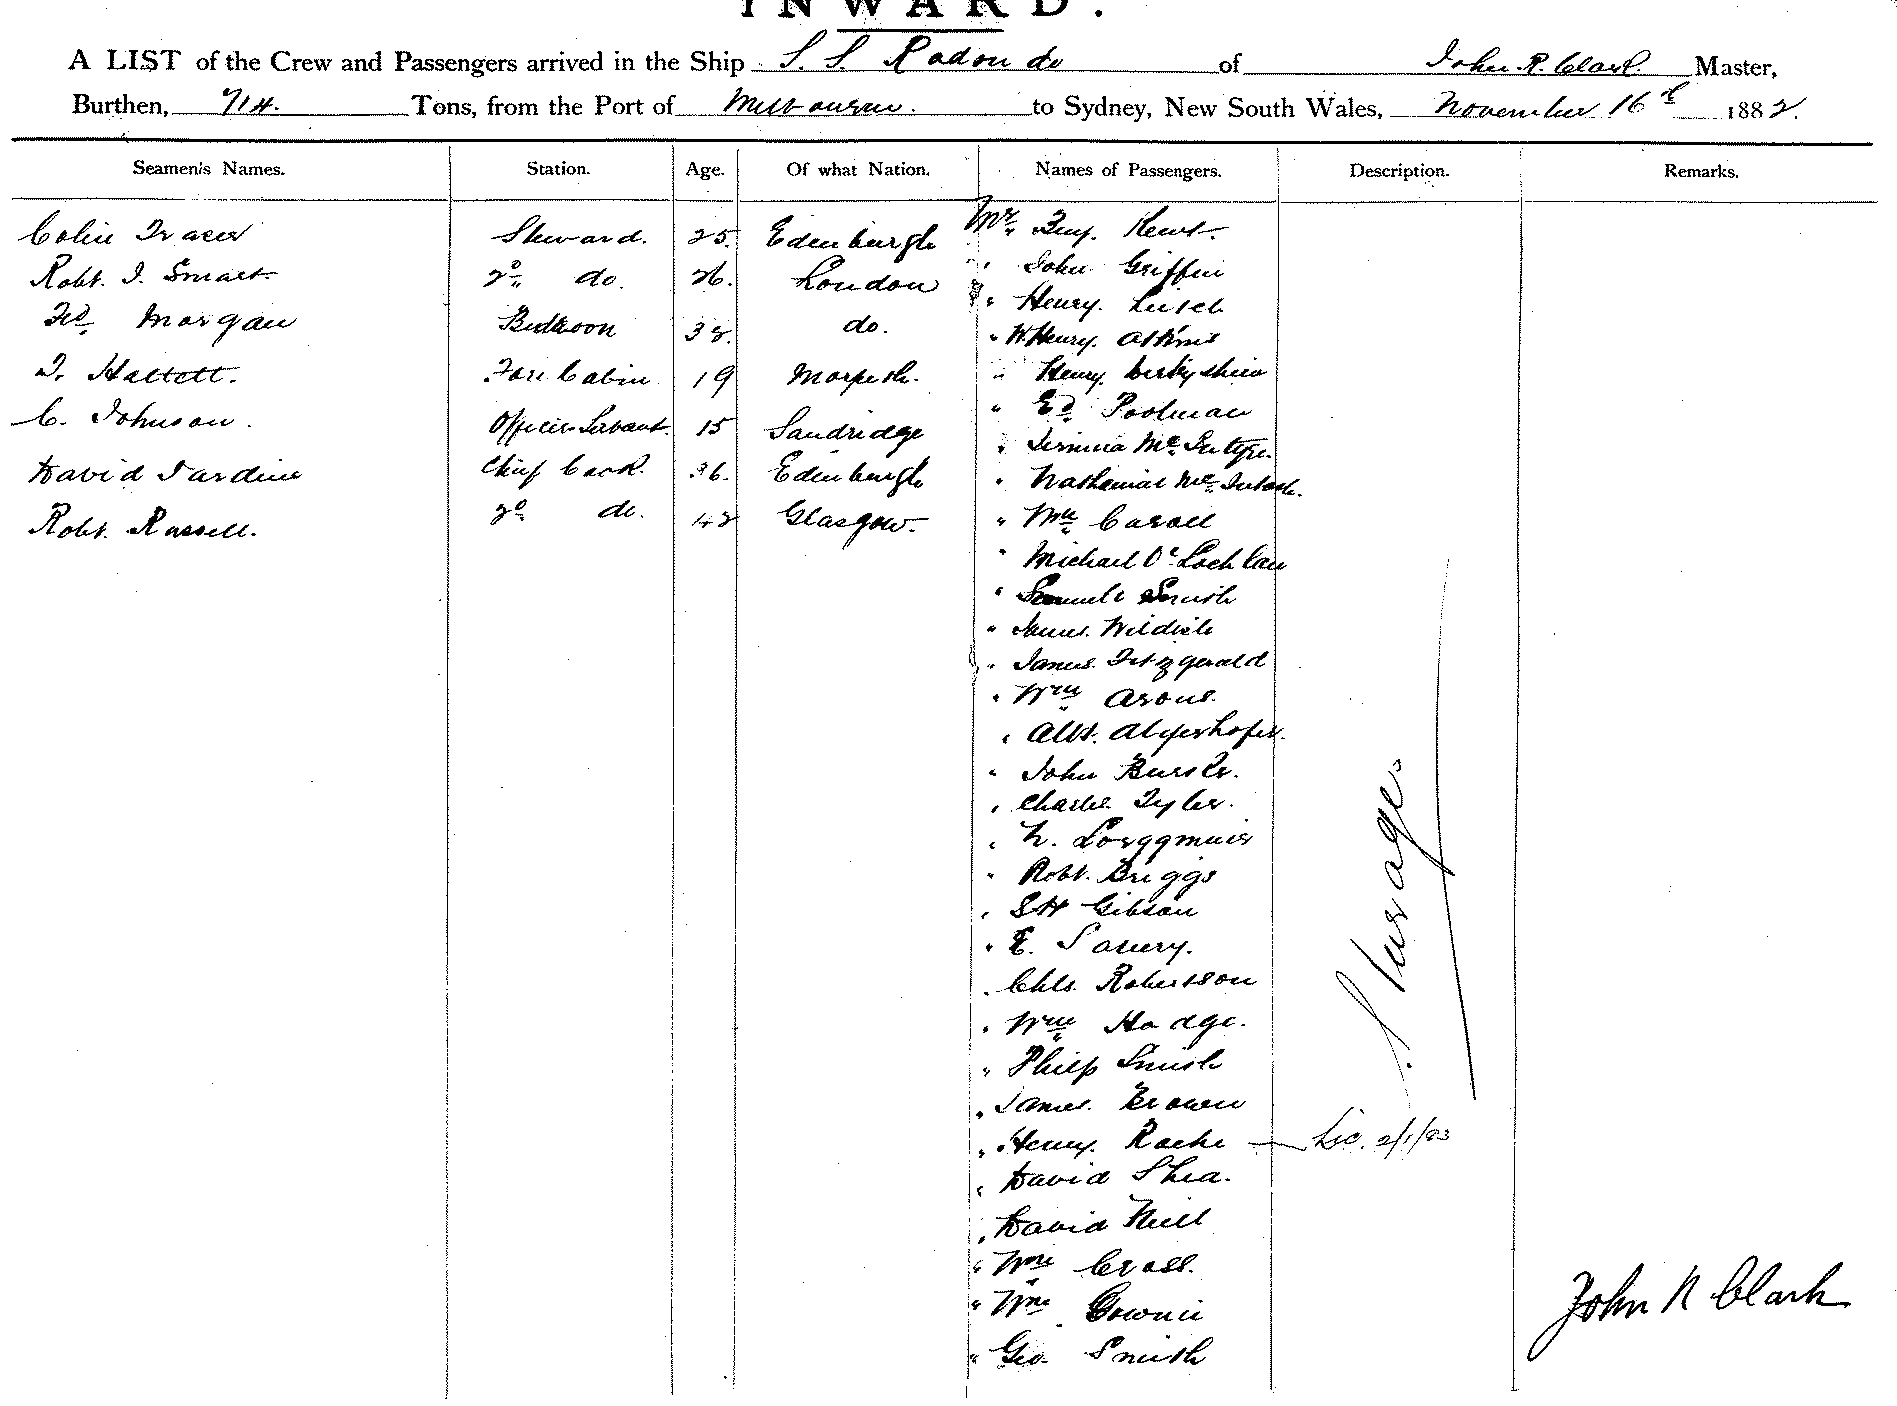 INWARD.
A LIST of the Crew and Passengers arrived in the Ship S. S. Rodondo of John R. Clark Master,
Burthen, 714. Tons, from the Port of Melbourne. to Sydney, New South Wales, November 16th 1882.
Seamen's Names. Station. Age. Of what Nation. Names of Passengers. Description. Remarks.
Colin Fraser Steward. 25. Edenburgh Mr. Benj. Kewt.
" John Griffin
Robt. J. Smart 2nd do. 26. London
" Henry
Morgan 32. do.
" W. Henry. Atkins
T. Hallett. Fore Cabin 19 Morpeth. " Henry. Derbyshire
" Ed. Poolman
C. Johnson. Officers Servant. 15 Sandridge
" Mc Intyre.
David Jardine Chief Cook. 36. Edenburgh " Nathanial Mc Intosh.
Robt. Russell. 2nd do. 42 Glasgow. " Caroll
" Michael O'Lochlan
" Samuel Smith
" James
" James Fitzgerald
" Wm Arons.
" Albt.
" John
" Charles Tyler.
" N.
" Robt. Briggs
" Gibson
" E.
" Chls. Robertson
" Wm Hodge.
" Philip Smith
" James. Brown
" Henry. Roche — Lic. 2/1/83
" David Shea.
" David Neill
" Wm Cross.
" Wm Downie
" Geo. Smith
Sturage.
John R Clark